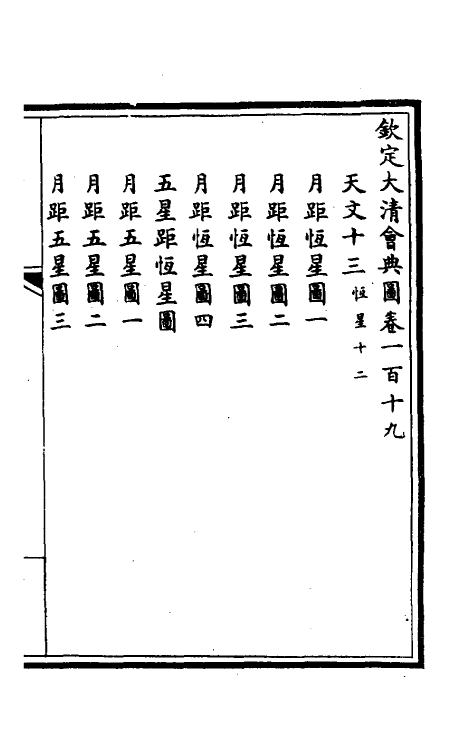 欽定大清會典圖卷一百十九
天文十三恒星十二
月距恆星圖一
月距恆星圖二
月距恆星圖三
月距恆星圖四
五星距恆星圖
月距五星圖一
月距五星圖二
月距五星圖三